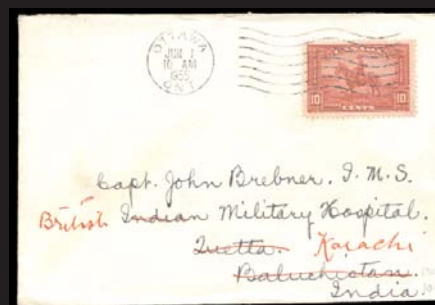 OTTAWA
JUN 1
10 AM
1935
ONT.
CANADA
10 10
CENTS
Capt. John Brebner. I.M.S.
British Indian Military Hospital.
Quetta. Karachi
Baluchistan.
India.